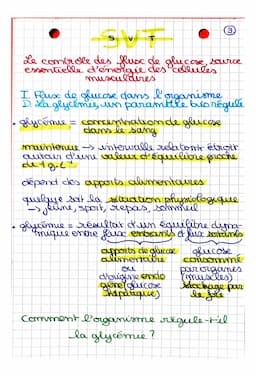 ③
SVT
SVT
Le contrôle des flux de glucose, source
essentielle d'énergie des cellules
musculaires
I. Flux de glucose dans l'organisme
D. La glycémie, un paramètre bio régulé
• glycémie = concentration de glucose
dans le sang
maintenue → intervalle relatmt étroit
autour d'une valeur d'équilibre proche
de 1 g.L⁻¹
dépend des apports alimentaires
quelque soit la situation physiologique
→ jeune, sport, repas, sommeil
• glycémie = résultat d'un équilibre dyna-
mique entre flux entrants et flux sortants
apports de glucose
alimentaire
ou
d'origine endo
gène (glucose
hépatique)
glucose
consommé
par organes
(muscles)
stockage par
le foie
Comment l'organisme régule-t-il
la glycémie ?